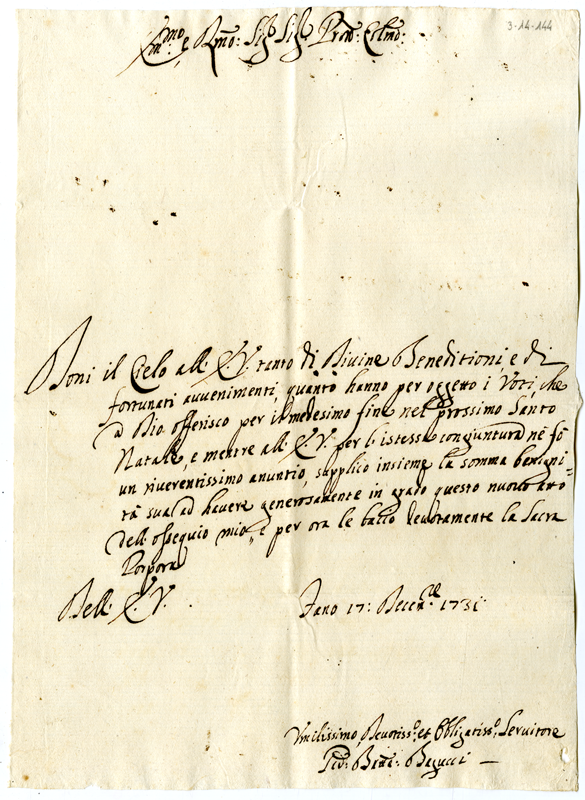 3-14-144
Em̃mo e Rm̃o: Sig.r Sig.r Pron̄ Colm̃o:
Doni il Cielo all' E. V. tanto di Divine Beneditioni, e di
fortunati avvenimenti, quanto hanno per oggetto i Voti, che
a Dio offerisco per il medesimo fine nel prossimo Santo
Natale, e mentre all' E. V. per l'istessa congiuntura nè fò
un riverentissimo anuntio, supplico insieme la somma benigni=
tà sua ad havere generosamente in grado questo nuovo atto
dell' ossequio mio, e per ora le bacio devotamente la Sacra
Porpora
Dell' E. V.
Fano 17: Decem.re 1731
Umilissimo, Devotiss.o et Obligatiss.o Servitore